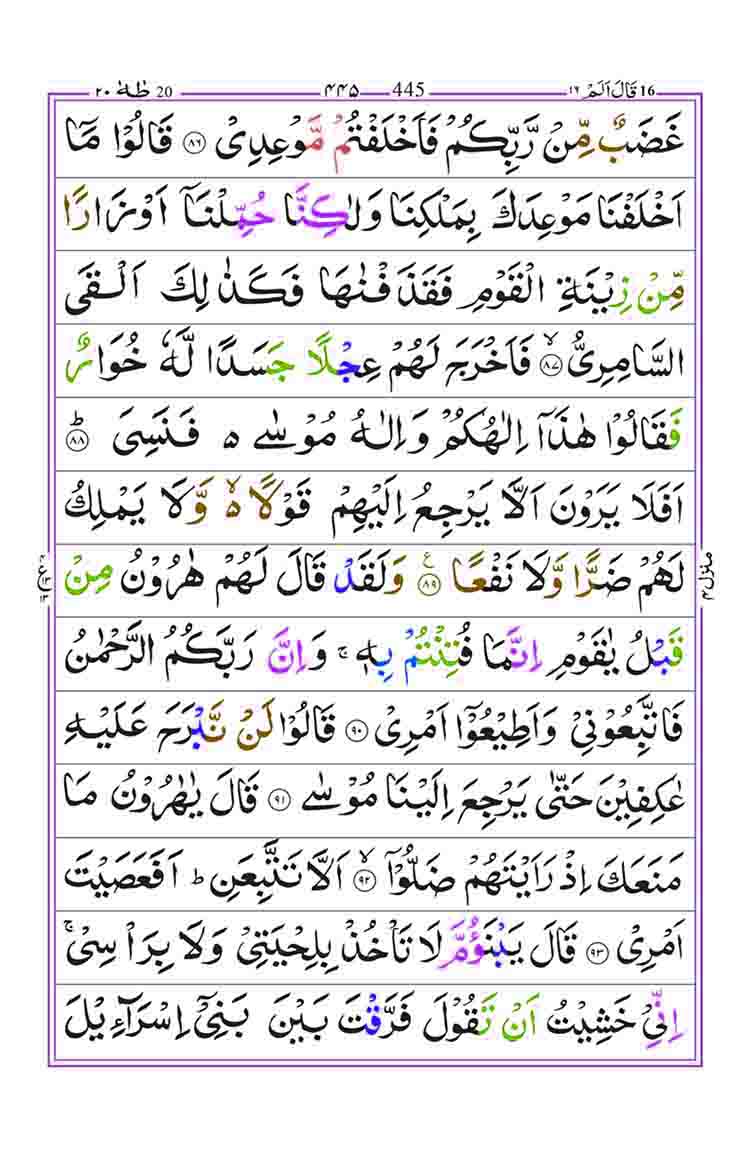 ٢٠ طٰهٰ 20 ٤٤٥ 445 ١٦ قَالَ اَلَمْ 16
غَضَبٌ مِّنْ رَّبِّكُمْ فَاَخْلَفْتُمْ مَّوْعِدِیْ ۝٨٦ قَالُوْا مَاۤ
اَخْلَفْنَا مَوْعِدَكَ بِمَلْكِنَا وَلٰكِنَّا حُمِّلْنَاۤ اَوْزَارًا
مِّنْ زِیْنَةِ الْقَوْمِ فَقَذَفْنٰهَا فَكَذٰلِكَ اَلْقَی
السَّامِرِیُّ ۙ۝٨٧ فَاَخْرَجَ لَهُمْ عِجْلًا جَسَدًا لَّهٗ خُوَارٌ
فَقَالُوْا هٰذَاۤ اِلٰهُكُمْ وَاِلٰهُ مُوْسٰی ۵ فَنَسِیَ ؕ۝٨٨
اَفَلَا یَرَوْنَ اَلَّا یَرْجِعُ اِلَیْهِمْ قَوْلًا ۵ۙ وَّلَا یَمْلِكُ
لَهُمْ ضَرًّا وَّلَا نَفْعًا ۝٨٩ ع وَلَقَدْ قَالَ لَهُمْ هٰرُوْنُ مِنْ
قَبْلُ یٰقَوْمِ اِنَّمَا فُتِنْتُمْ بِهٖ ۚ وَاِنَّ رَبَّكُمُ الرَّحْمٰنُ
فَاتَّبِعُوْنِیْ وَاَطِیْعُوْۤا اَمْرِیْ ۝٩٠ قَالُوْا لَنْ نَّبْرَحَ عَلَیْهِ
عٰكِفِیْنَ حَتّٰی یَرْجِعَ اِلَیْنَا مُوْسٰی ۝٩١ قَالَ یٰهٰرُوْنُ مَا
مَنَعَكَ اِذْ رَاَیْتَهُمْ ضَلُّوْۤا ۙ۝٩٢ اَلَّا تَتَّبِعَنِ ؕ اَفَعَصَیْتَ
اَمْرِیْ ۝٩٣ قَالَ یَبْنَؤُمَّ لَا تَاْخُذْ بِلِحْیَتِیْ وَلَا بِرَاْسِیْ ۚ
اِنِّیْ خَشِیْتُ اَنْ تَقُوْلَ فَرَّقْتَ بَیْنَ بَنِیْۤ اِسْرَآءِیْلَ
منزل ٤